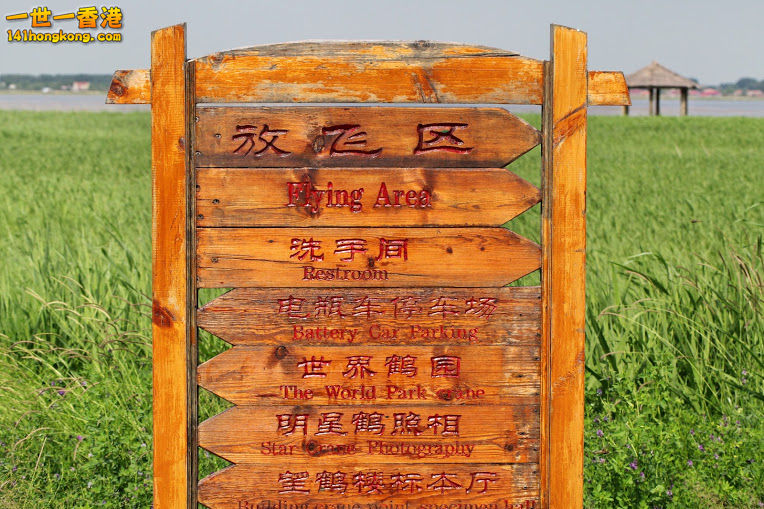 一世一香港
141hongkong.com
放飞区
Flying Area
洗手间
Restroom
电瓶车停车场
Battery Car Parking
世界鹤园
The World Park crane
明星鹤照相
Star Crane Photography
望鹤楼标本厅
Building crane point specimen hall